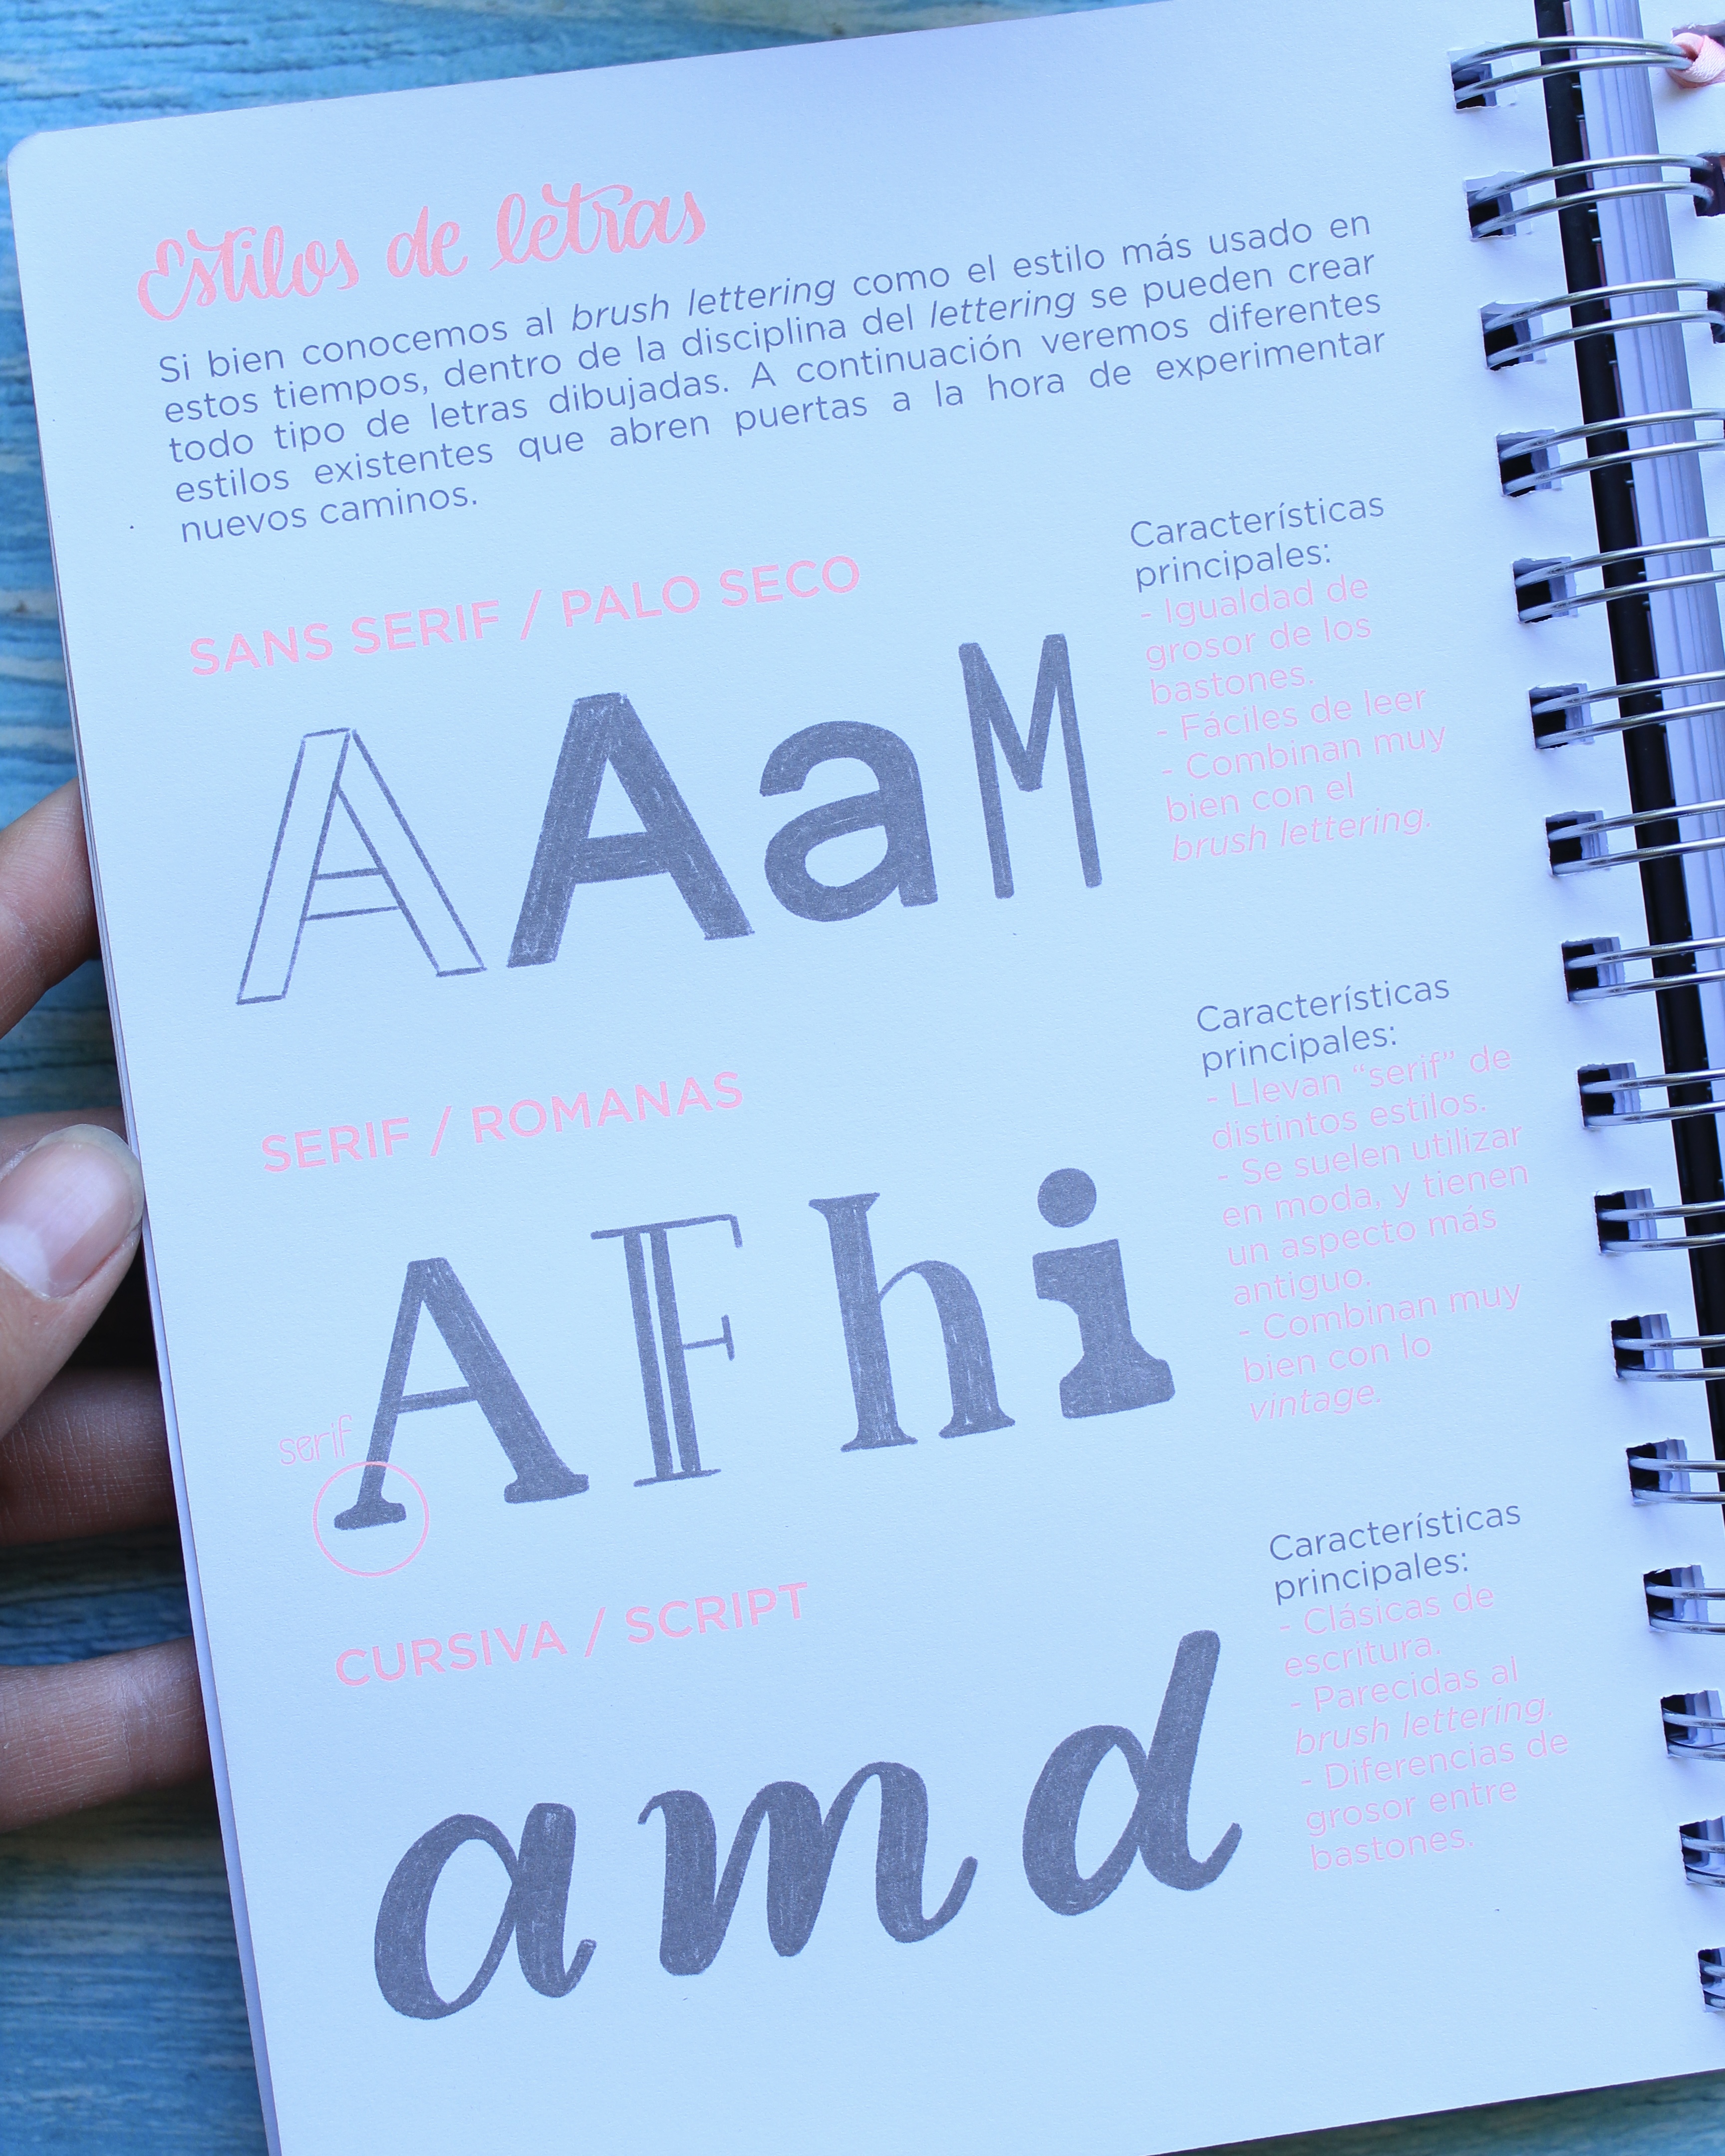 Estilos de letras
Si bien conocemos al brush lettering como el estilo más usado en
estos tiempos, dentro de la disciplina del lettering se pueden crear
todo tipo de letras dibujadas. A continuación veremos diferentes
estilos existentes que abren puertas a la hora de experimentar
nuevos caminos.
SANS SERIF / PALO SECO
A A a M
Características
principales:
- Igualdad de
grosor de los
bastones.
- Fáciles de leer
- Combinan muy
bien con el
brush lettering.
SERIF / ROMANAS
A F h i
serif
Características
principales:
- Llevan “serif” de
distintos estilos.
- Se suelen utilizar
en moda, y tienen
un aspecto más
antiguo.
- Combinan muy
bien con lo
vintage.
CURSIVA / SCRIPT
a m d
Características
principales:
- Clásicas de
escritura.
- Parecidas al
brush lettering.
- Diferencias de
grosor entre
bastones.